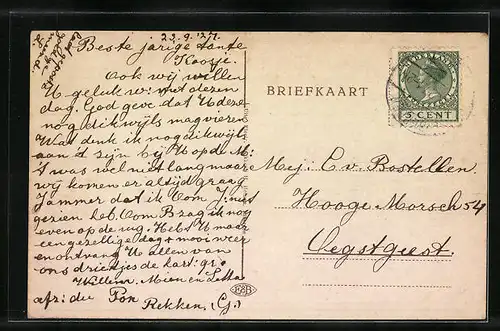 23-9-'27.
Beste jarige tante
Kootje.
Ook wij willen
U geluk w: met dezen
dag. God geve dat U deze
nog dikwijls mag vieren
Wat denk ik nog dikwijls
aan 't zijn bij U op de M:
't was wel niet lang maar
wij komen er altijd graag
Jammer dat ik Oom J: niet
gezien heb. Oom B zag ik nog
even op de rug. Hebt U maar
een gezellige dag & mooi weer
en ontvang U allen van
ons drietjes de hart: gr:
Willem, Mien en
afz: du Pon
Rekken. (G.)
BRIEFKAART
NEDERLAND
5 CENT
Mej: C. v. Bostellen
Hooge Morsch 54
Oegstgeest.